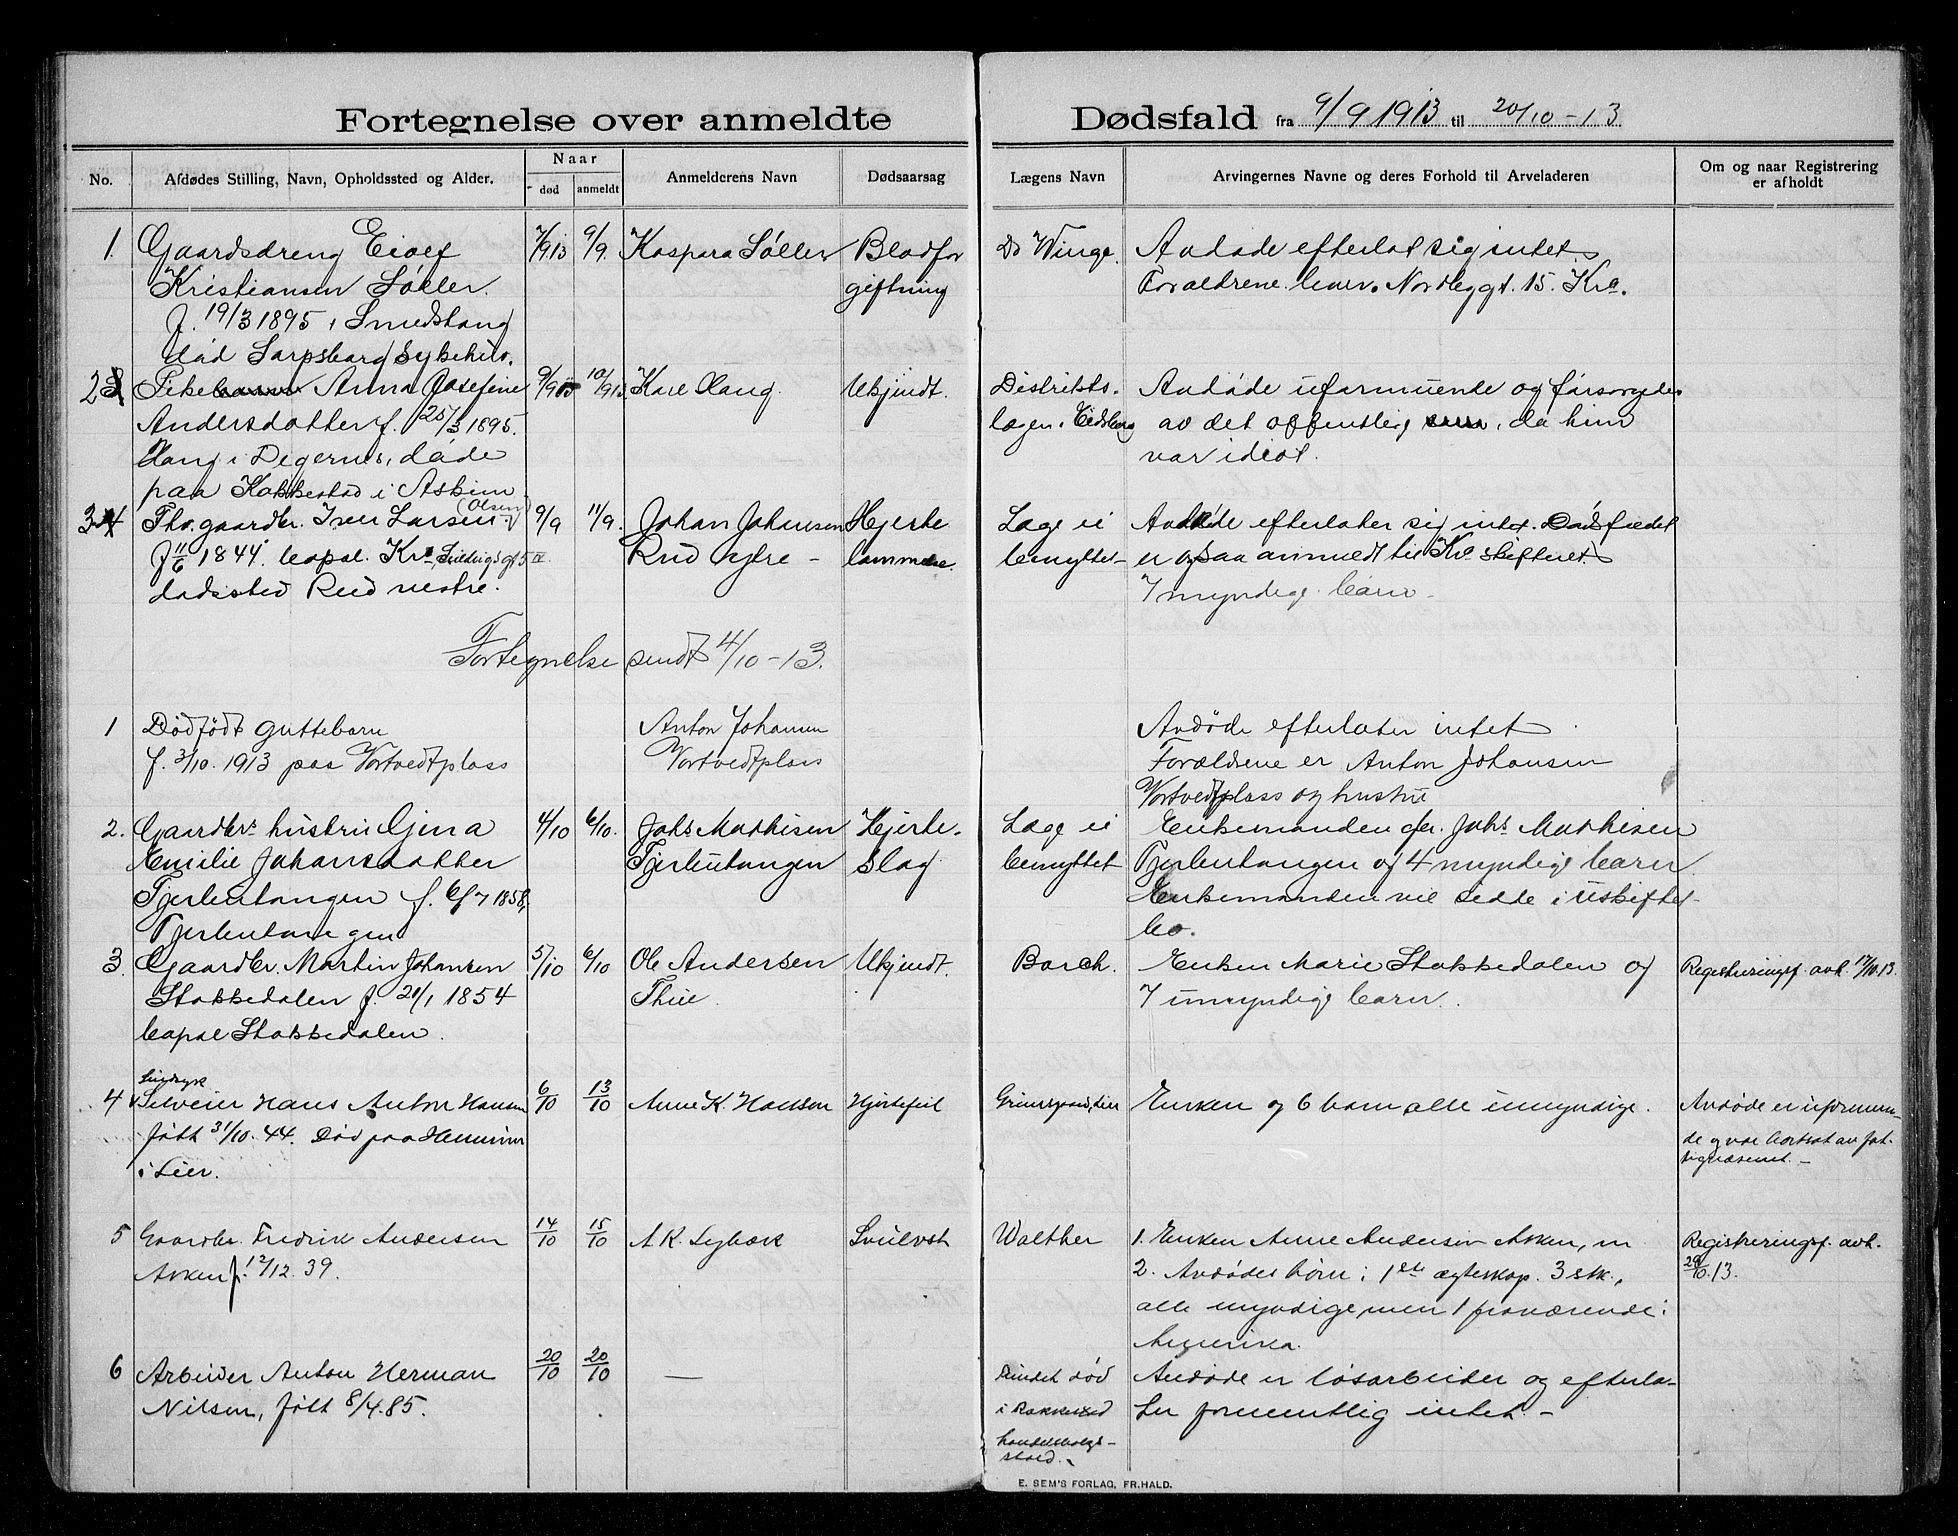 Fortegnelse over anmeldte Dødsfald fra 9/9 1913 til 20/10-13
No.
Afdødes Stilling, Navn, Opholdssted og Alder.
Naar
død
anmeldt
Anmelderens Navn
Dødsaarsag
Lægens Navn
Arvingernes Navne og deres Forhold til Arveladeren
Om og naar Registrering
er afholdt
1.
Gaardsdreng Eiolf
Kristiansen Søller.
f. 19/3 1895 i Smedstang
död Sarpsborg Sykehus.
7/9 13
9/9.
Kaspara Søller
Blodfor
giftning
Dr Winge.
Avdøde efterlot sig intet
Forældrene bever. Nordbyggt. 15. Kra.
2
Pike Anna Josefine
Andersdatter f. 25/3 1895.
Haug i Degernes, døde
paa Kokkestad i Askim
9/9
10/9 13
Kare Haug.
Ukjendt.
Distrikts.
lægen i Eidsberg
Avdøde uformuende og forsørgedes
av det offentlig, da hun
var idiot.
3
Fhv. gaardbr. Iver Larsen
(Olsen)
f 11/6 1844. bopæl. Kra
dødssted Rud vestre.
9/9
11/9.
Johan Johansen
Rud ytre -
Hjerte
lammelse.
Læge ei
benyttet-
Avdøde efterlater sig intet. Dødsfaldet
er ogsaa anmeldt til Kra skifteret.
7 myndige barn.
Fortegnelse sendt 4/10-13.
1
Dødfødt guttebarn
f. 3/10. 1913 paa Vortvedtplass
Anton Johansen
Vortvedtplass
Avdöde efterlater intet
Forældrene er Anton Johansen
Vortvedtplass og hustru
2.
Gaardbrs hustru Gina
Emilie Johansdatter
Tjerbutangen f. 6/7 1858,
Tjerbutangen
4/10
6/10.
Johs Mathisen
Tjerbutangen
Hjerte-
slag
Læge ei
benyttet
Enkemanden gbr. Johs Mathisen
Tjerbutangen og 4 myndige barn.
Enkemanden vil sidde i uskiftet
bo.
3.
Gaardbr. Martin Johansen
Stokkedalen f. 21/1 1854
bopæl Stokkedalen.
5/10
6/10
Ole Andersen
Thue.
Ukjendt.
Borch.
Enken Marie Stokkedalen og
7 umyndige barn.
Registreringsf. avh. 17/10.13.
4
Sindsyk
Selveier Hans Anton Hansen
født 31/10.44. Død paa
i Lier.
6/10
13/10
Anne K. Hansen
Hjertefeil
Enken og 6 barn alle umyndige.
Avdøde er uformuen-
de og var bortsat av fat-
tigvæsenet.-
5
Gaardbr. Fredrik Andersen
Asken f. 12/12 39.
14/10
15/10
A. K. Lybæk
Svulvst
Walther
1. Enken Anne Andersen Asken, m
2. Avdødes børn i 1ste ægteskap. 3 stk.,
alle myndige, men 1 fraværende i
Amerika.
Registreringsf. avh.
29/10.13.
6
Arbeider Anton Herman
Nilsen, født 8/4.85.
20/10
20/10
—
Fundet død
i Rakkestad
handelsbolgs-
stald.-
Avdøde er løsarbeider og efterla-
ter formentlig intet.-
E. SEM'S FORLAG, FR.HALD.